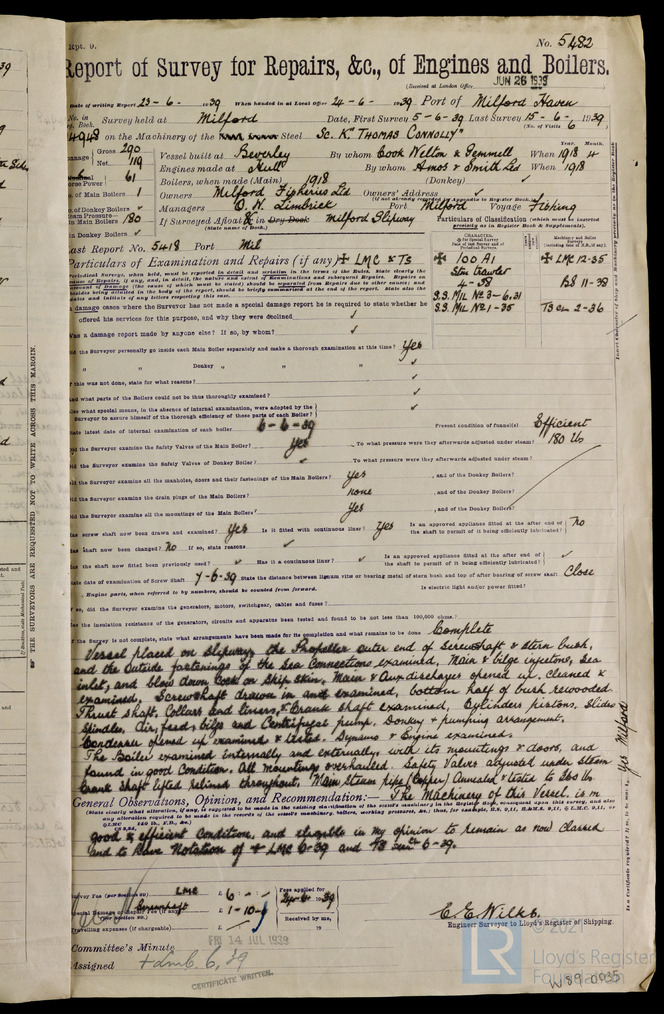 Rpt. 9.
No. 5482
Report of Survey for Repairs, &c., of Engines and Boilers.
(Received at London Office JUN 26 1939
Date of writing Report 23-6-1939 When handed in at Local Office 24-6-1939 Port of Milford Haven
No. in Survey held at Milford Date, First Survey 5-6-39 Last Survey 15-6-1939
Reg. Book. (No. of Visits 6
on the Machinery of the Steel Sc. K "THOMAS CONNOLLY"
Tonnage Gross 290 Vessel built at Beverley By whom Cook Welton & Gemmell When 1918 4
Net 119 Engines made at Hull By whom Amos & Smith Ltd When 1918
Horse Power 61 Boilers, when made (Main) 1918 (Donkey) ✓
No. of Main Boilers 1 Owners Milford Fisheries Ltd Owners' Address ✓
(if not already reported in Appendix to Register Book.)
No. of Donkey Boilers ✓ Managers O. W. Limbrick Port Milford Voyage Fishing
Steam Pressure in Main Boilers 180 If Surveyed Afloat & in Dry Dock Milford Slipway
(State name of Dock.)
in Donkey Boilers ✓
Particulars of Classification (which must be inserted precisely as in Register Book & Supplements).
Last Report No. 5418 Port Mil
Particulars of Examination and Repairs (if any) ✠ LMC & TS
✠ 100 A1 ✠ LMC 12-35
Stm Trawler
4-38 BS 11-38
S.S. MIL No. 3-6.31
S.S. MIL No. 1-35 TS CL 2-36
In damage cases where the Surveyor has not made a special damage report he is required to state whether he
offered his services for this purpose, and why they were declined ✓
Was a damage report made by anyone else? If so, by whom? ✓
Did the Surveyor personally go inside each Main Boiler separately and make a thorough examination at this time? Yes
" " Donkey " " " ✓
If this was not done, state for what reasons? ✓
And what parts of the Boilers could not be thus thoroughly examined? ✓
Also what special means, in the absence of internal examination, were adopted by the
Surveyor to assure himself of the thorough efficiency of these parts of each Boiler? ✓
State latest date of internal examination of each boiler 6-6-39 Present condition of funnel(s) Efficient
Did the Surveyor examine the Safety Valves of the Main Boiler? Yes To what pressure were they afterwards adjusted under steam? 180 lbs
Did the Surveyor examine the Safety Valves of Donkey Boiler? ✓ To what pressure were they afterwards adjusted under steam?
Did the Surveyor examine all the manholes, doors and their fastenings of the Main Boilers? Yes , and of the Donkey Boilers?
Did the Surveyor examine the drain plugs of the Main Boilers? none , and of the Donkey Boilers?
Did the Surveyor examine all the mountings of the Main Boilers? Yes , and of the Donkey Boilers?
Has screw shaft now been drawn and examined? Yes Is it fitted with continuous liner? Yes Is an approved appliance fitted at the after end of the shaft to permit of it being efficiently lubricated? No
Has shaft now been changed? No If so, state reasons ✓
Has the shaft now fitted been previously used? ✓ Has it a continuous liner? ✓ Is an approved appliance fitted at the after end of the shaft to permit of it being efficiently lubricated? ✓
State date of examination of Screw Shaft 7-6-39 State the distance between lignum vitæ or bearing metal of stern bush and top of after bearing of screw shaft Close
Engine parts, when referred to by numbers, should be counted from forward. Is electric light and/or power fitted?
If so, did the Surveyor examine the generators, motors, switchgear, cables and fuses?
Has the insulation resistance of the generators, circuits and apparatus been tested and found to be not less than 100,000 ohms?
If the Survey is not complete, state what arrangements have been made for its completion and what remains to be done Complete
Vessel placed on Slipway, the Propeller outer end of Screwshaft & Stern bush,
and the Outside fastenings of the Sea Connections examined, Main & bilge injections, Sea
inlet, and blow down Cock on Ship skin. Main & Aux discharges opened up. Cleaned &
examined, Screwshaft drawn in and examined, bottom half of bush rewooded
Thrust shaft, Collars and liners, & Crank shaft examined, Cylinders pistons, Slides
Spindles, Air, feed, bilge and Centrifugal pump. Donkey & pumping arrangement.
Condenser opened up examined & tested. Dynamo & Engine examined.
The Boiler examined internally and externally, with its mountings & doors, and
found in good Condition. All mountings overhauled. Safety Valves adjusted under Steam
Crank Shaft lifted relined throughout. Main Steam pipe (Copper) Annealed & tested to 360 lbs
General Observations, Opinion, and Recommendation:— The Machinery of this Vessel is in
good & efficient Condition, and eligible in my opinion to remain as now Classed
and to have Notation of ✠ LMC 6-39 and TS seen 6-39.
Survey Fee LMC £ 6 : - : - Fees applied for
Special Damage or Repair Fee (if any) Screwshaft £ 1-10-0 24-6-1939
Travelling expenses (if chargeable) £ Received by me,
C. E. Wilks.
Engineer Surveyor to Lloyd's Register of Shipping.
Committee's Minute FRI 14 JUL 1939
Assigned + Lmc 6,39
CERTIFICATE WRITTEN.
THE SURVEYORS ARE REQUESTED NOT TO WRITE ACROSS THIS MARGIN.
Yes Milford
© 2021
LR
Lloyd's Register
Foundation
W89-0935